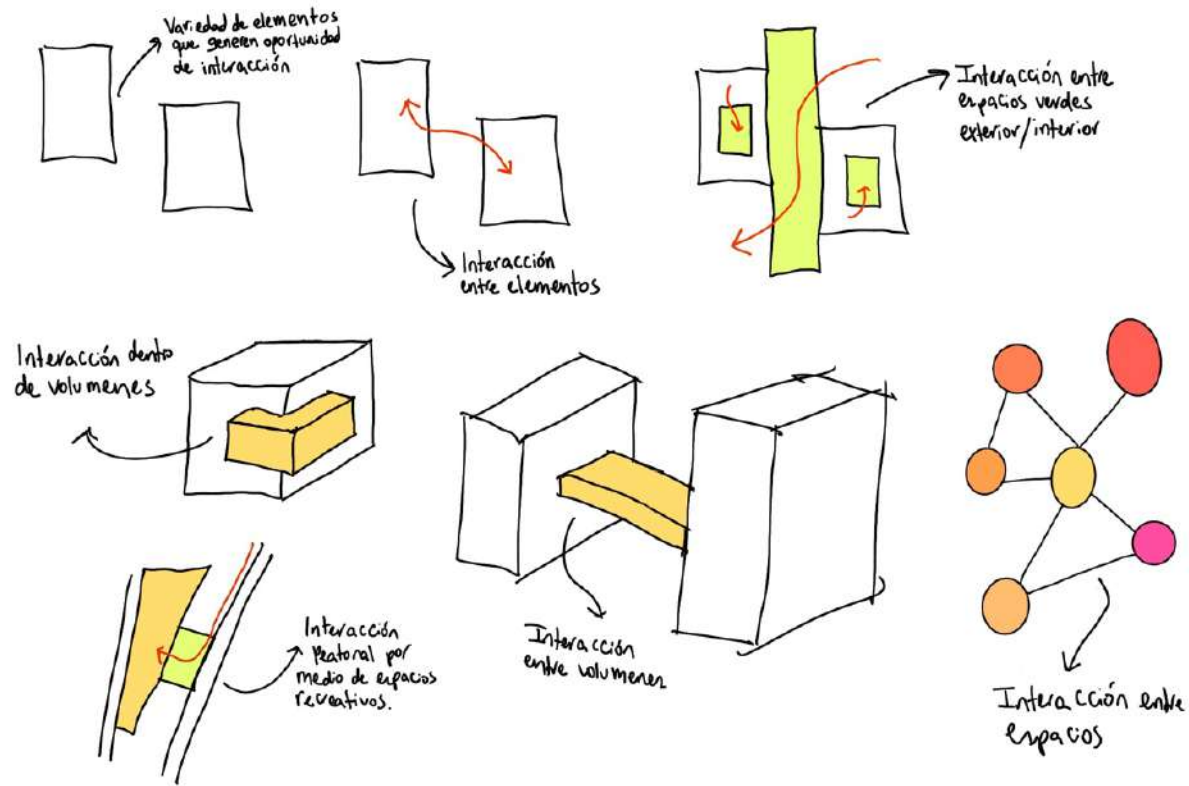 Variedad de elementos
que generen oportunidad
de interacción
Interacción
entre elementos
Interacción entre
espacios verdes
exterior/interior
Interacción dento
de volumenes
Interacción
peatonal por
medio de espacios
recreativos.
Interacción
entre volumenes
Interacción entre
espacios